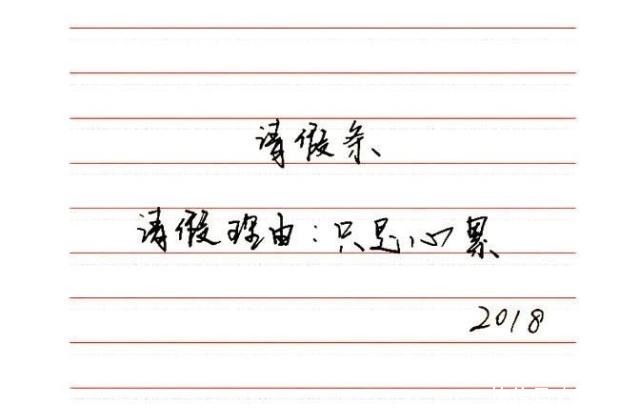 请假条
请假理由:只是心累
2018